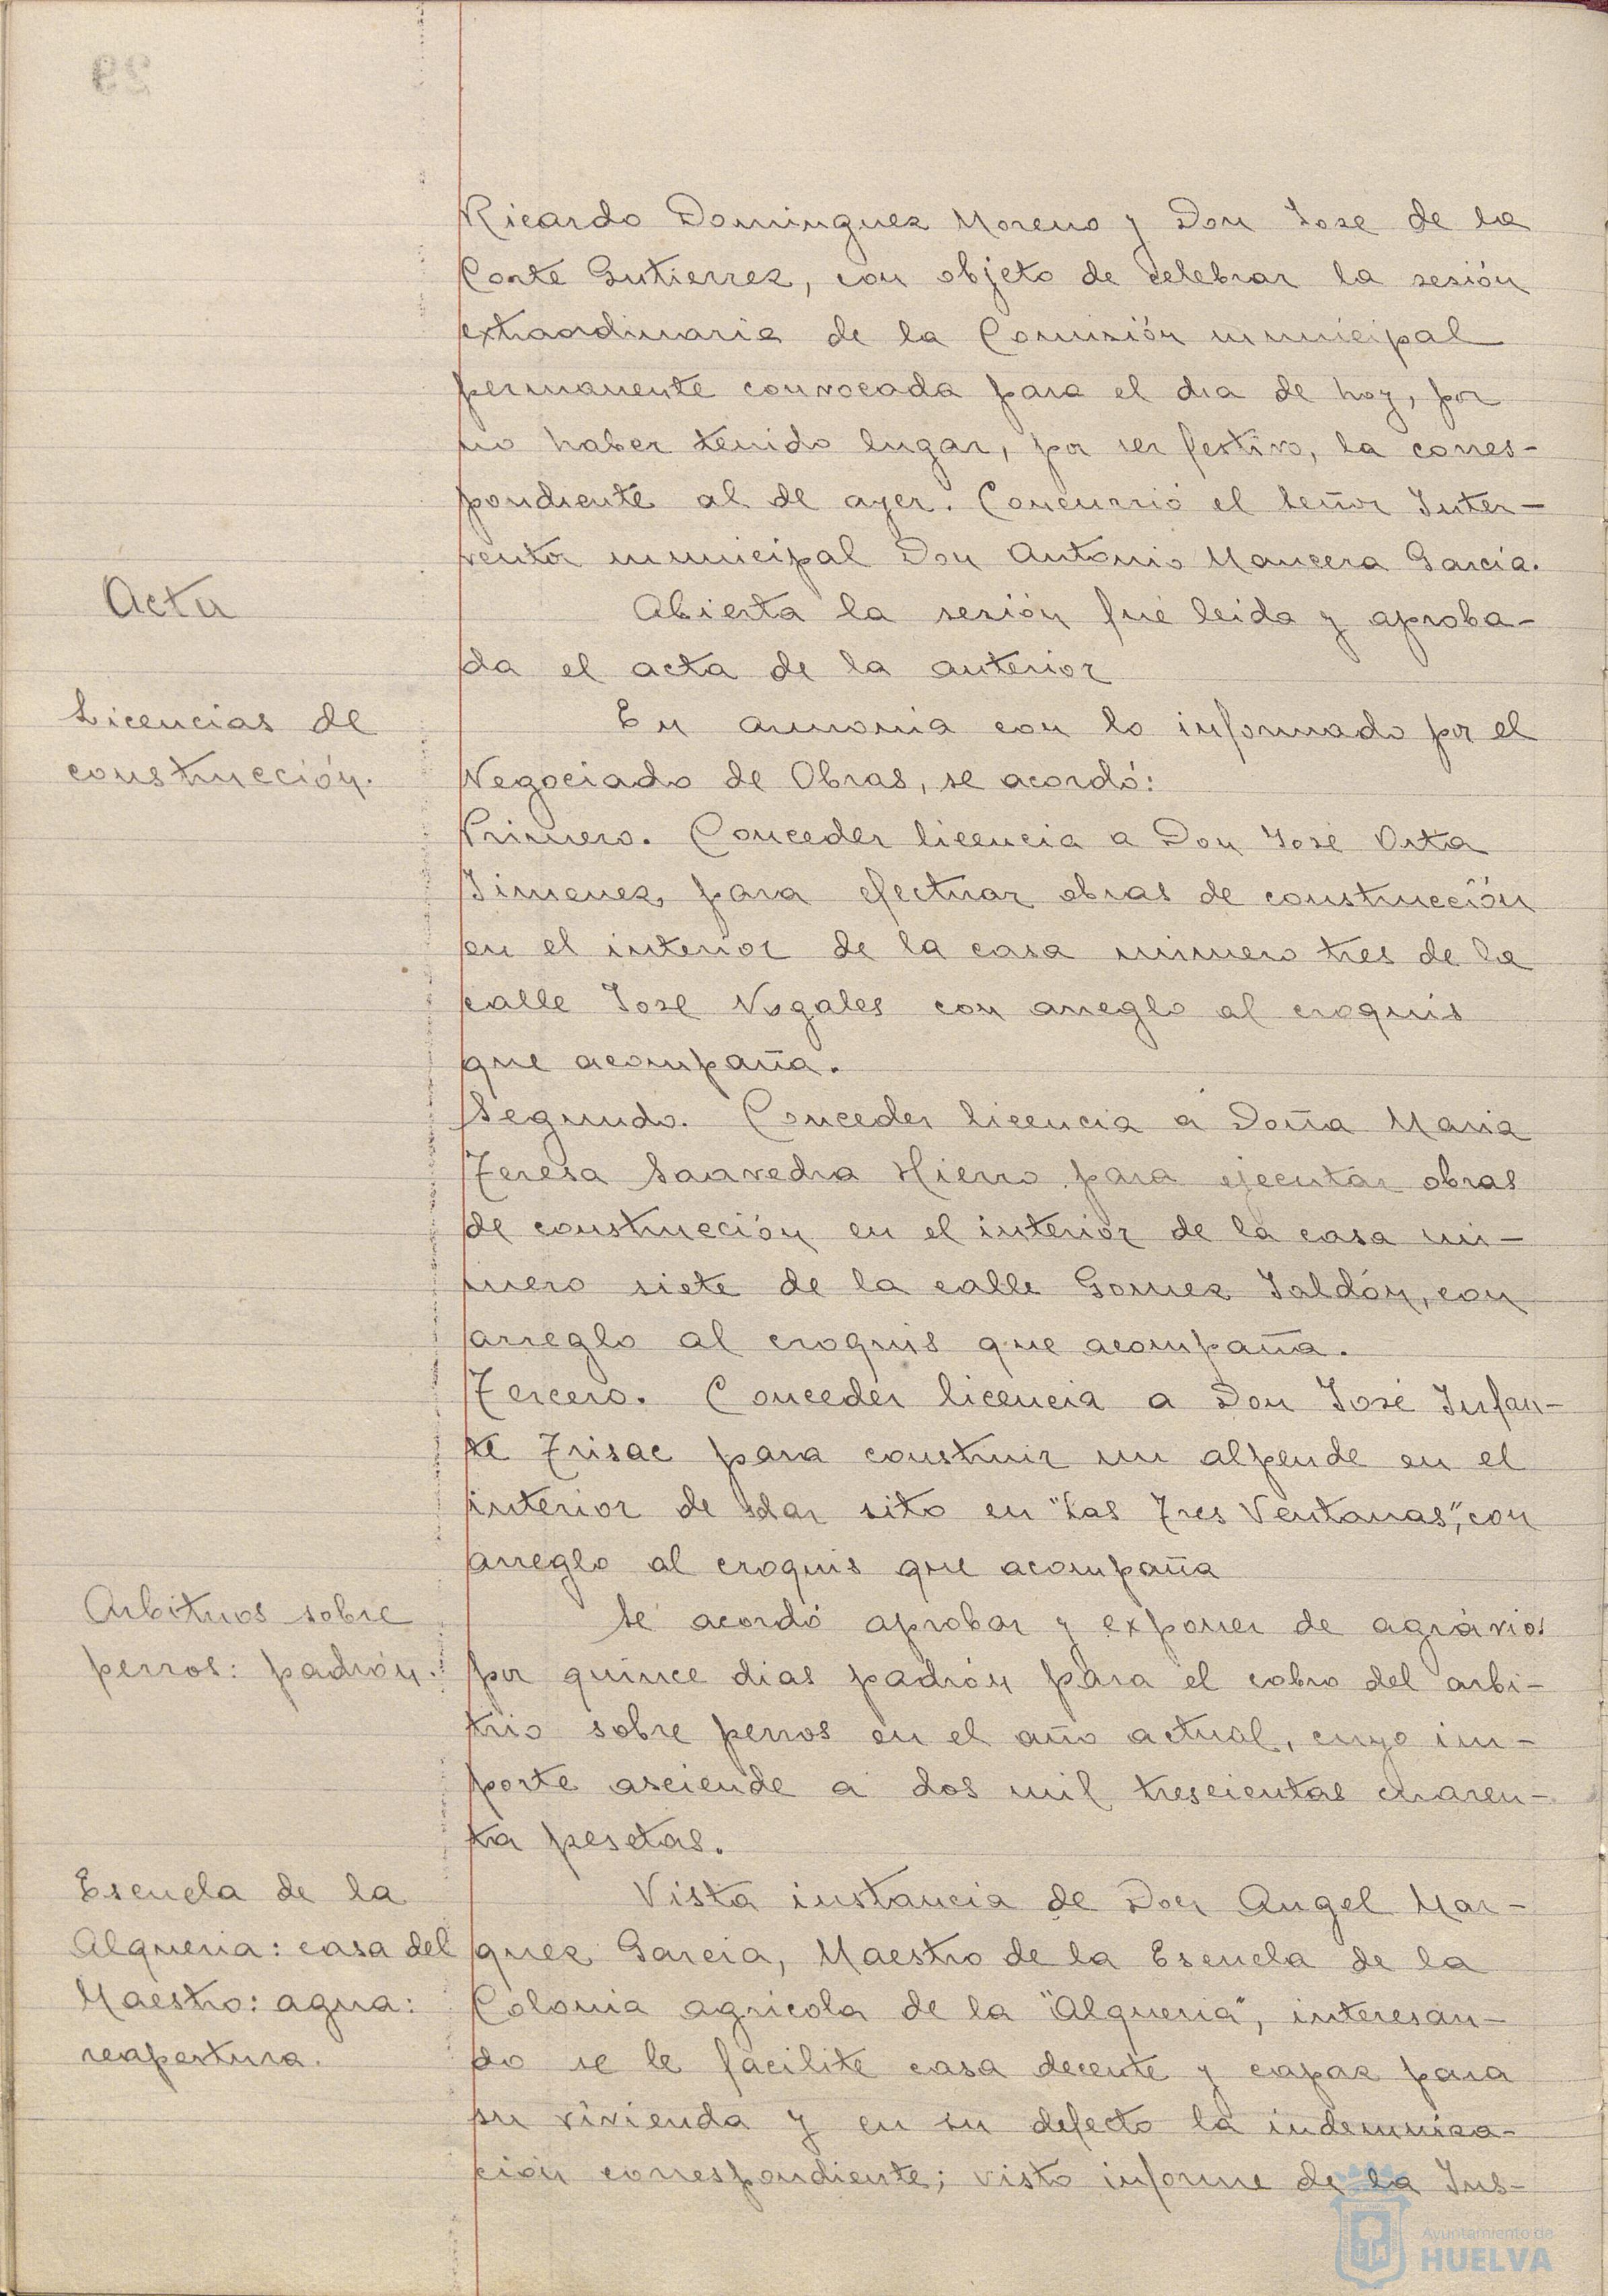 29
Ricardo Dominguez Moreno y Don Jose de la
Corte Gutierrez, con objeto de celebrar la sesión
extraordinaria de la Comisión municipal
permanente convocada para el dia de hoy, por
no haber tenido lugar, por ser festivo, la corres-
pondiente al de ayer. Concurrió el señor Inter-
ventor municipal Don Antonio Mancera García.
Acta
Abierta la sesión fué leida y aproba-
da el acta de la anterior
Licencias de
construcción.
En armonia con lo informado por el
Negociado de Obras, se acordó:
Primero. Conceder licencia a Don José Orta
Jimenez, para efectuar obras de construcción
en el interior de la casa número tres de la
calle Jose Nogales con arreglo al croquis
que acompaña.
Segundo. Conceder licencia a Doña Maria
Teresa Saavedra Hierro para ejecutar obras
de construcción en el interior de la casa nú-
mero siete de la calle Gomez Jaldón, con
arreglo al croquis que acompaña.
Tercero. Conceder licencia a Don José Infan-
te Trisac para construir un alpende en el
interior de solar sito en "Las Tres Ventanas", con
arreglo al croquis que acompaña
Arbitrios sobre
perros: padrón.
Se acordó aprobar y exponer de agrávios
por quince dias padrón para el cobro del arbi-
trio sobre perros en el año actual, cuyo im-
porte asciende a dos mil trescientas cuaren-
ta pesetas.
Escuela de la
Alqueria: casa del
Maestro: agua:
reapertura.
Vista instancia de Don Angel Mar-
quez Garcia, Maestro de la Escuela de la
Colonia agricola de la "Alqueria", interesan-
do se le facilite casa decente y capaz para
su vivienda y en su defecto la indemniza-
ción correspondiente; visto informe de la Ins-
Ayuntamiento de
HUELVA